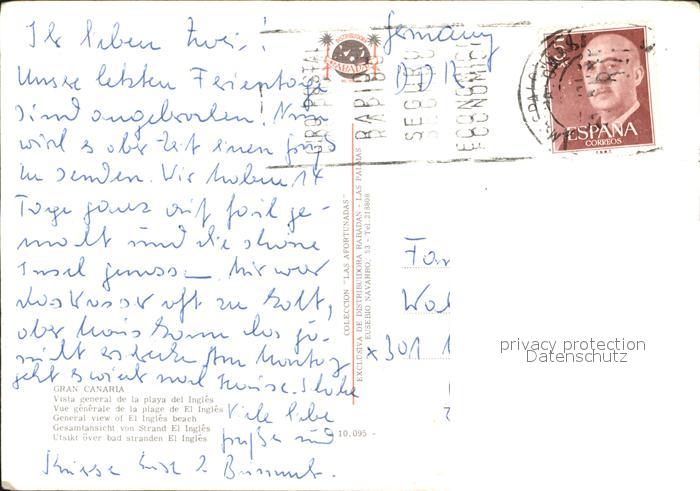 Ihr lieben Zwei!
Unsere letzten Ferientage
sind angebrochen. Nun
wird es aber Zeit einen Gruß
zu senden. Wir haben 14
Tage ganz auf faul ge-
macht und die schöne
Insel genossen. Mir war
das Wasser oft zu kalt,
aber
Am Montag
geht es wieder nach Hause.
Viele liebe
Grüße und
Küsse
Germany
DDR
GIRO POSTAL
RAPIDO
SEGURO
ECONOMICO
5
ESPAÑA
CORREOS
DISTRIBUIDORA
RABADAN
COLECCION "LAS AFORTUNADAS"
EXCLUSIVA DE DISTRIBUIDORA RABADAN - LAS PALMAS
EUSEBIO NAVARRO, 53 - Tel. 218808
x 301 1
privacy protection
Datenschutz
GRAN CANARIA
Vista general de la playa del Inglés
Vue générale de la plage de El Inglés
General view of El Inglés beach
Gesamtansicht von Strand El Inglés
Utsikt över bad stranden El Inglés
10.095 -